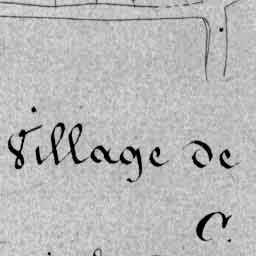 Village de
C.